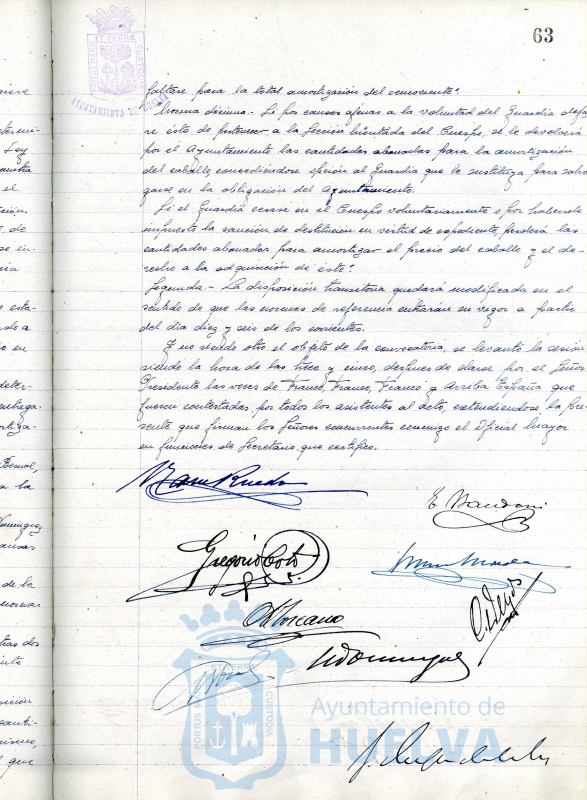 63
PORTUS MARIS ET TERRÆ CUSTODIA
AYUNTAMIENTO DE HUELVA
faltase para la total amortización del semoviente".
Norma décima.- Si por causas ajenas a la voluntad del Guardia deja-
re éste de pertenecer a la Sección Montada del Cuerpo, se le devolverá
por el Ayuntamiento las cantidades abonadas para la amortización
del caballo, concediéndose opción al Guardia que le sustituya para subro-
garse en la obligación del Ayuntamiento.
Si el Guardia cesase en el Cuerpo voluntariamente o por habérsele
impuesto la sanción de destitución en virtud de expediente, perderá las
cantidades abonadas para amortizar el precio del caballo y el de-
recho a la adquisición de éste".
Segunda.- La disposición transitoria quedará modificada en el
sentido de que las normas de referencia entrarán en vigor a partir
del día diez y seis de los corrientes.
Y no siendo otro el objeto de la convocatoria, se levantó la sesión
siendo la hora de las trece y cinco, después de darse por el Señor
Presidente las voces de Franco, Franco, Franco y Arriba España que
fueron contestadas por todos los asistentes al acto, extendiéndose la pre-
sente que firman los Señores concurrentes conmigo el Oficial Mayor
en funciones de Secretario, que certifico.
Gregorio Coto
Ayuntamiento de
HUELVA